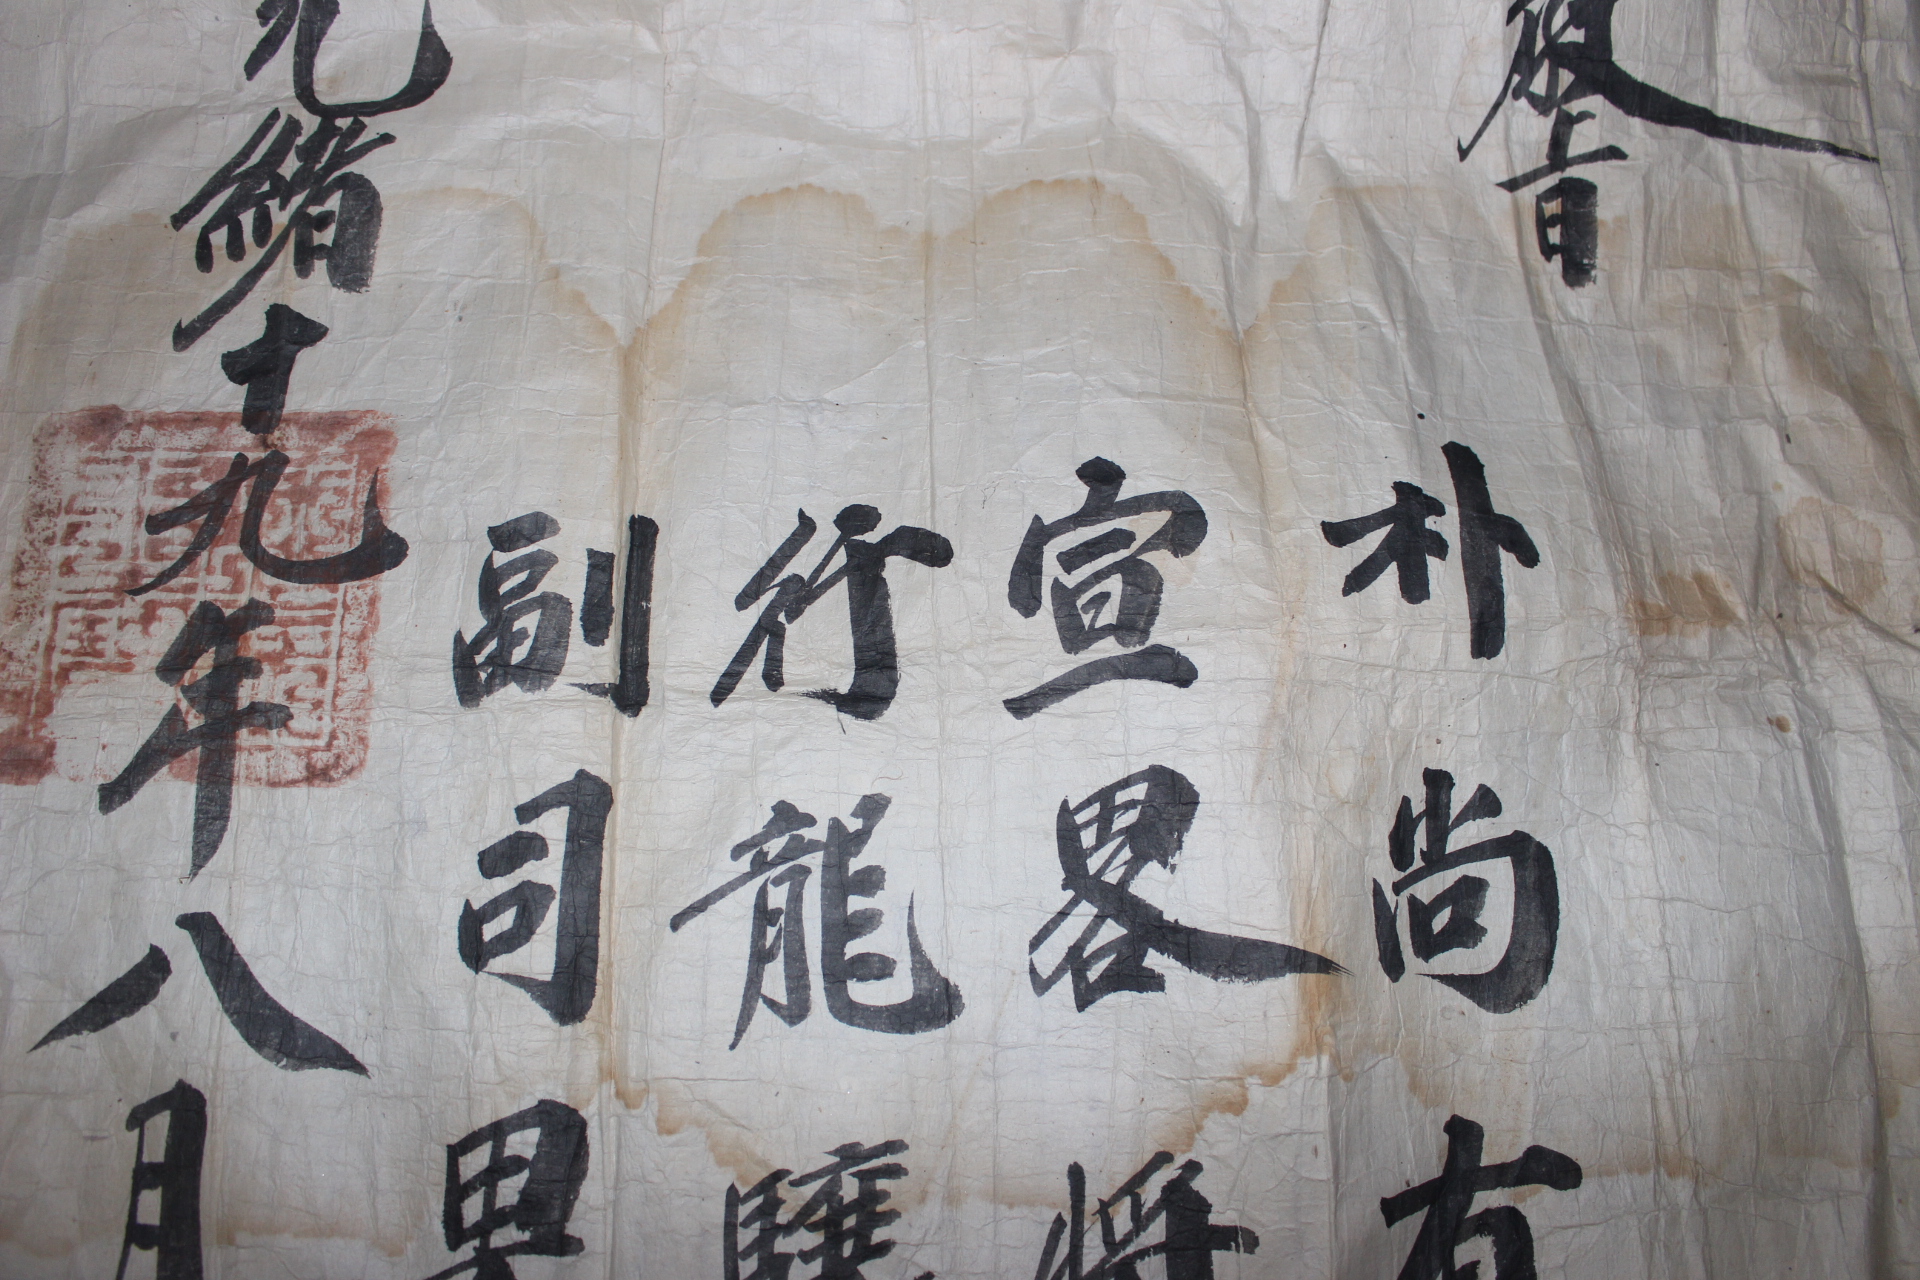 敎旨
朴尙有
宣畧將
行龍驤
副司果
光緖十九年八月